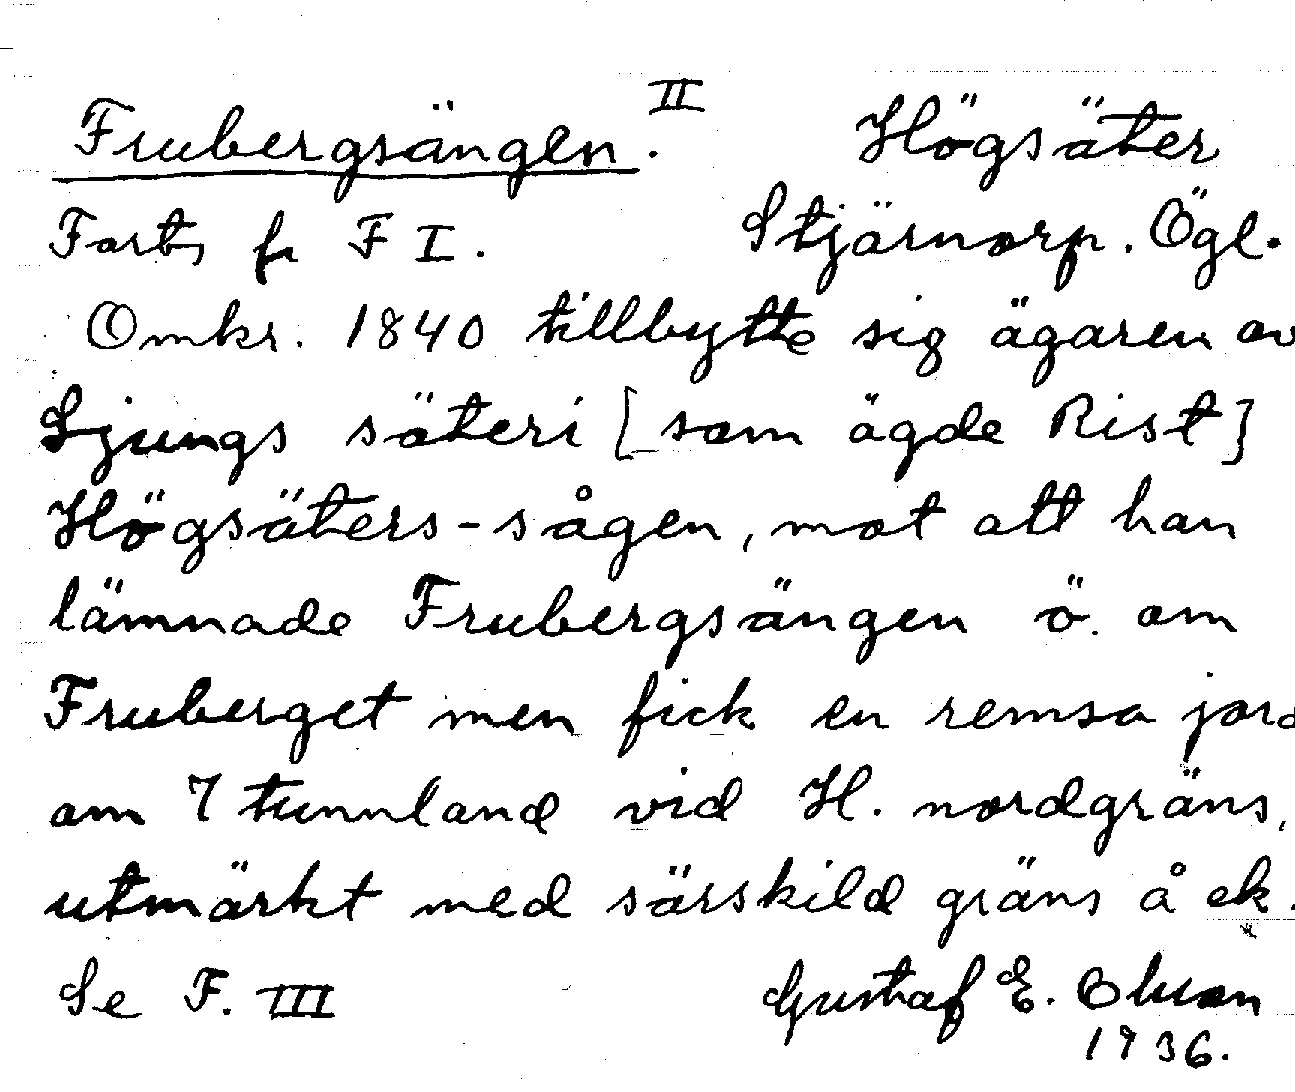 Frubergsängen. II Högsäter
Forts fr F I. Stjärnorp. Ögl.
Omkr. 1840 tillbytte sig ägaren av
Ljungs säteri [som ägde Rist]
Högsäters-sågen, mot att han
lämnade Frubergsängen ö. om
Fruberget men fick en remsa jord
om 7 tunnland vid H. nordgräns,
utmärkt med särskild gräns å ek.
Se F. III Gustaf E. Olsson
1936.